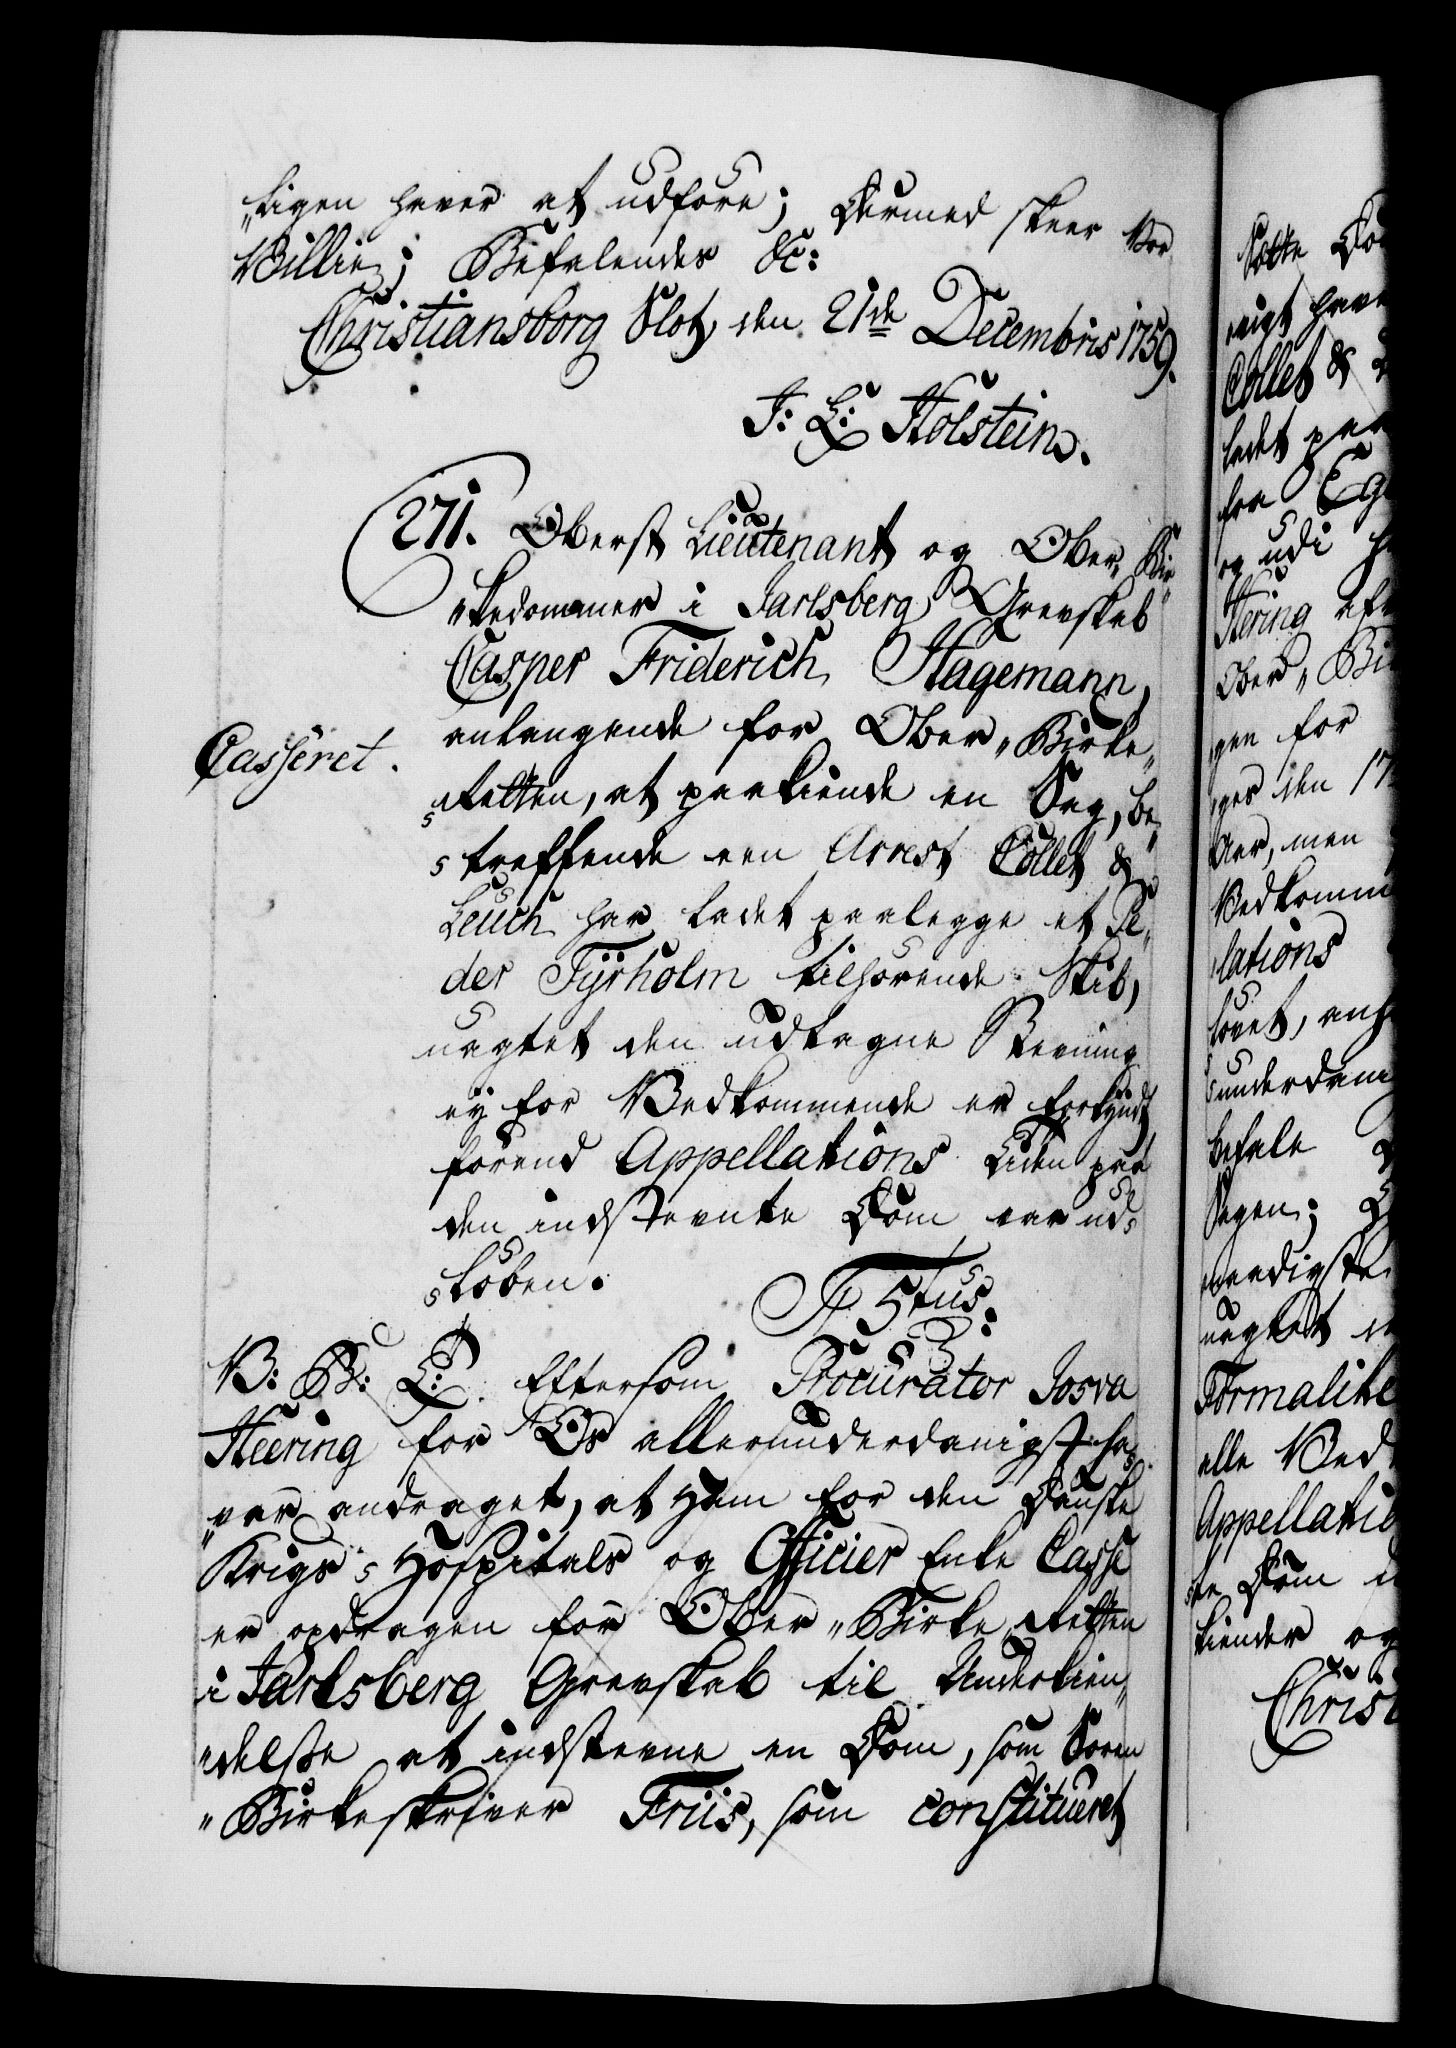 „tigen haver at udføre; Dermed skeer Vor
Villie; Befalendes &c:
Christiansborg Slot, den 21de Decembris 1759.
J: L: Holstein.
271. Oberst Lieutenant og Ober„Bir„
„kedommer i Jarlsberg Grevskab
Casper Friderich Hagemann,
anlangende for Ober„Birke„
Casseret.
Retten, at paakiende en Sag, be„
treffende een Arrest Collet &
Leuch har ladet paalegge et Pe„
der Tÿrholm tilhørende Skib,
uagtet den udtagne Stevning
eÿ for Vedkommende er forkyndt
førend Appellations Tiden paa
den indstevnte Dom var ud„
løben.
F 5tus.
V: G: T: Eftersom Procurator Josva
Heering for Os allerunderdanigst ha„
„ver andraget, at Ham for den Danske
Krigs Hospitals og Officier Enke Casse
er opdragen for Ober„Birke Retten
i Jarlsberg Grevskab til Underkien„
„delse at indstevne en Dom, som Soren
„Birkeskriver Friis, som constitueret
Sette Do
migt have
Collet &
ladet paa
fra
og udi
Hering
Ober„Bi
gen for
ger den 17
Aar, men
Vedkomm
lations
lovet,
underdani
befale
Sagen;
uagtet
Formalite
alle Ved
Appellatio
te Dom
kiender og
Christ